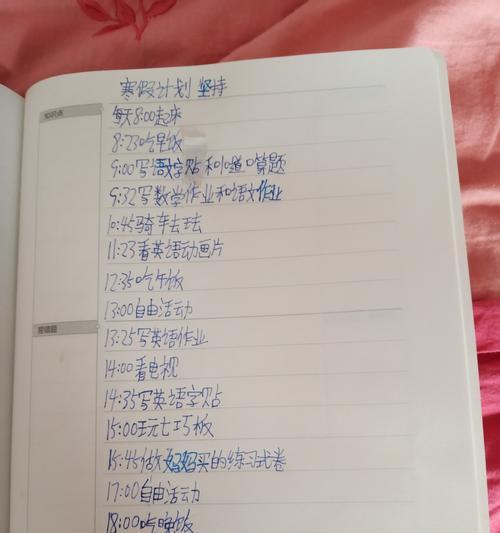 寒假计划 坚持
知识点
每天8:00起床
8:23吃早饭
9:00写语文字贴和1道口算题
9:32写数学作业和语文作业
10:45骑车去玩
11:23看英语动画片
12:35吃午饭
13:00自由活动
错错题
13:25写英语作业
14:00看电视
14:35写英语字贴
15:00玩七巧板
15:45做妈妈买的练习式卷
17:00自由活动
18:00吃晚饭